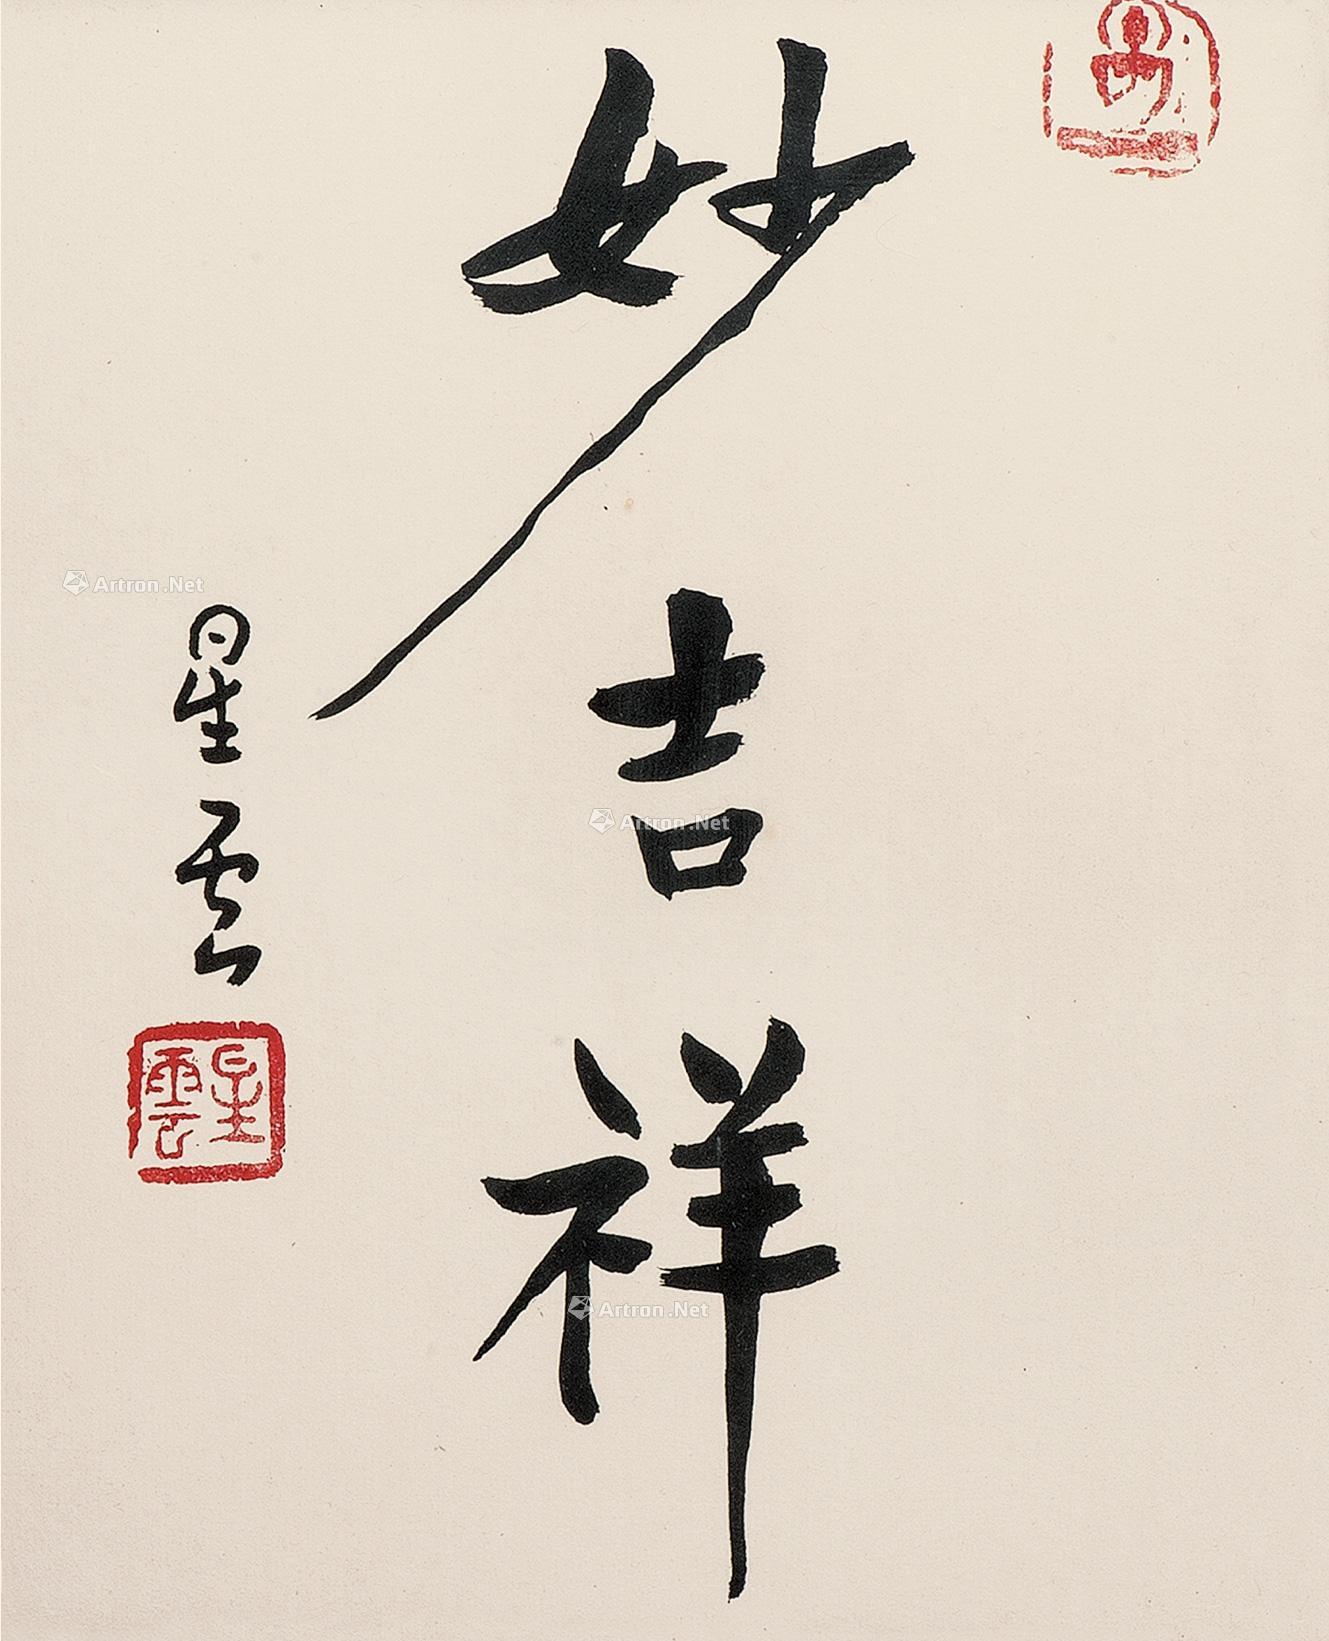 妙吉祥
星雲
星雲
Artron.Net
Artron.Net
Artron.Net